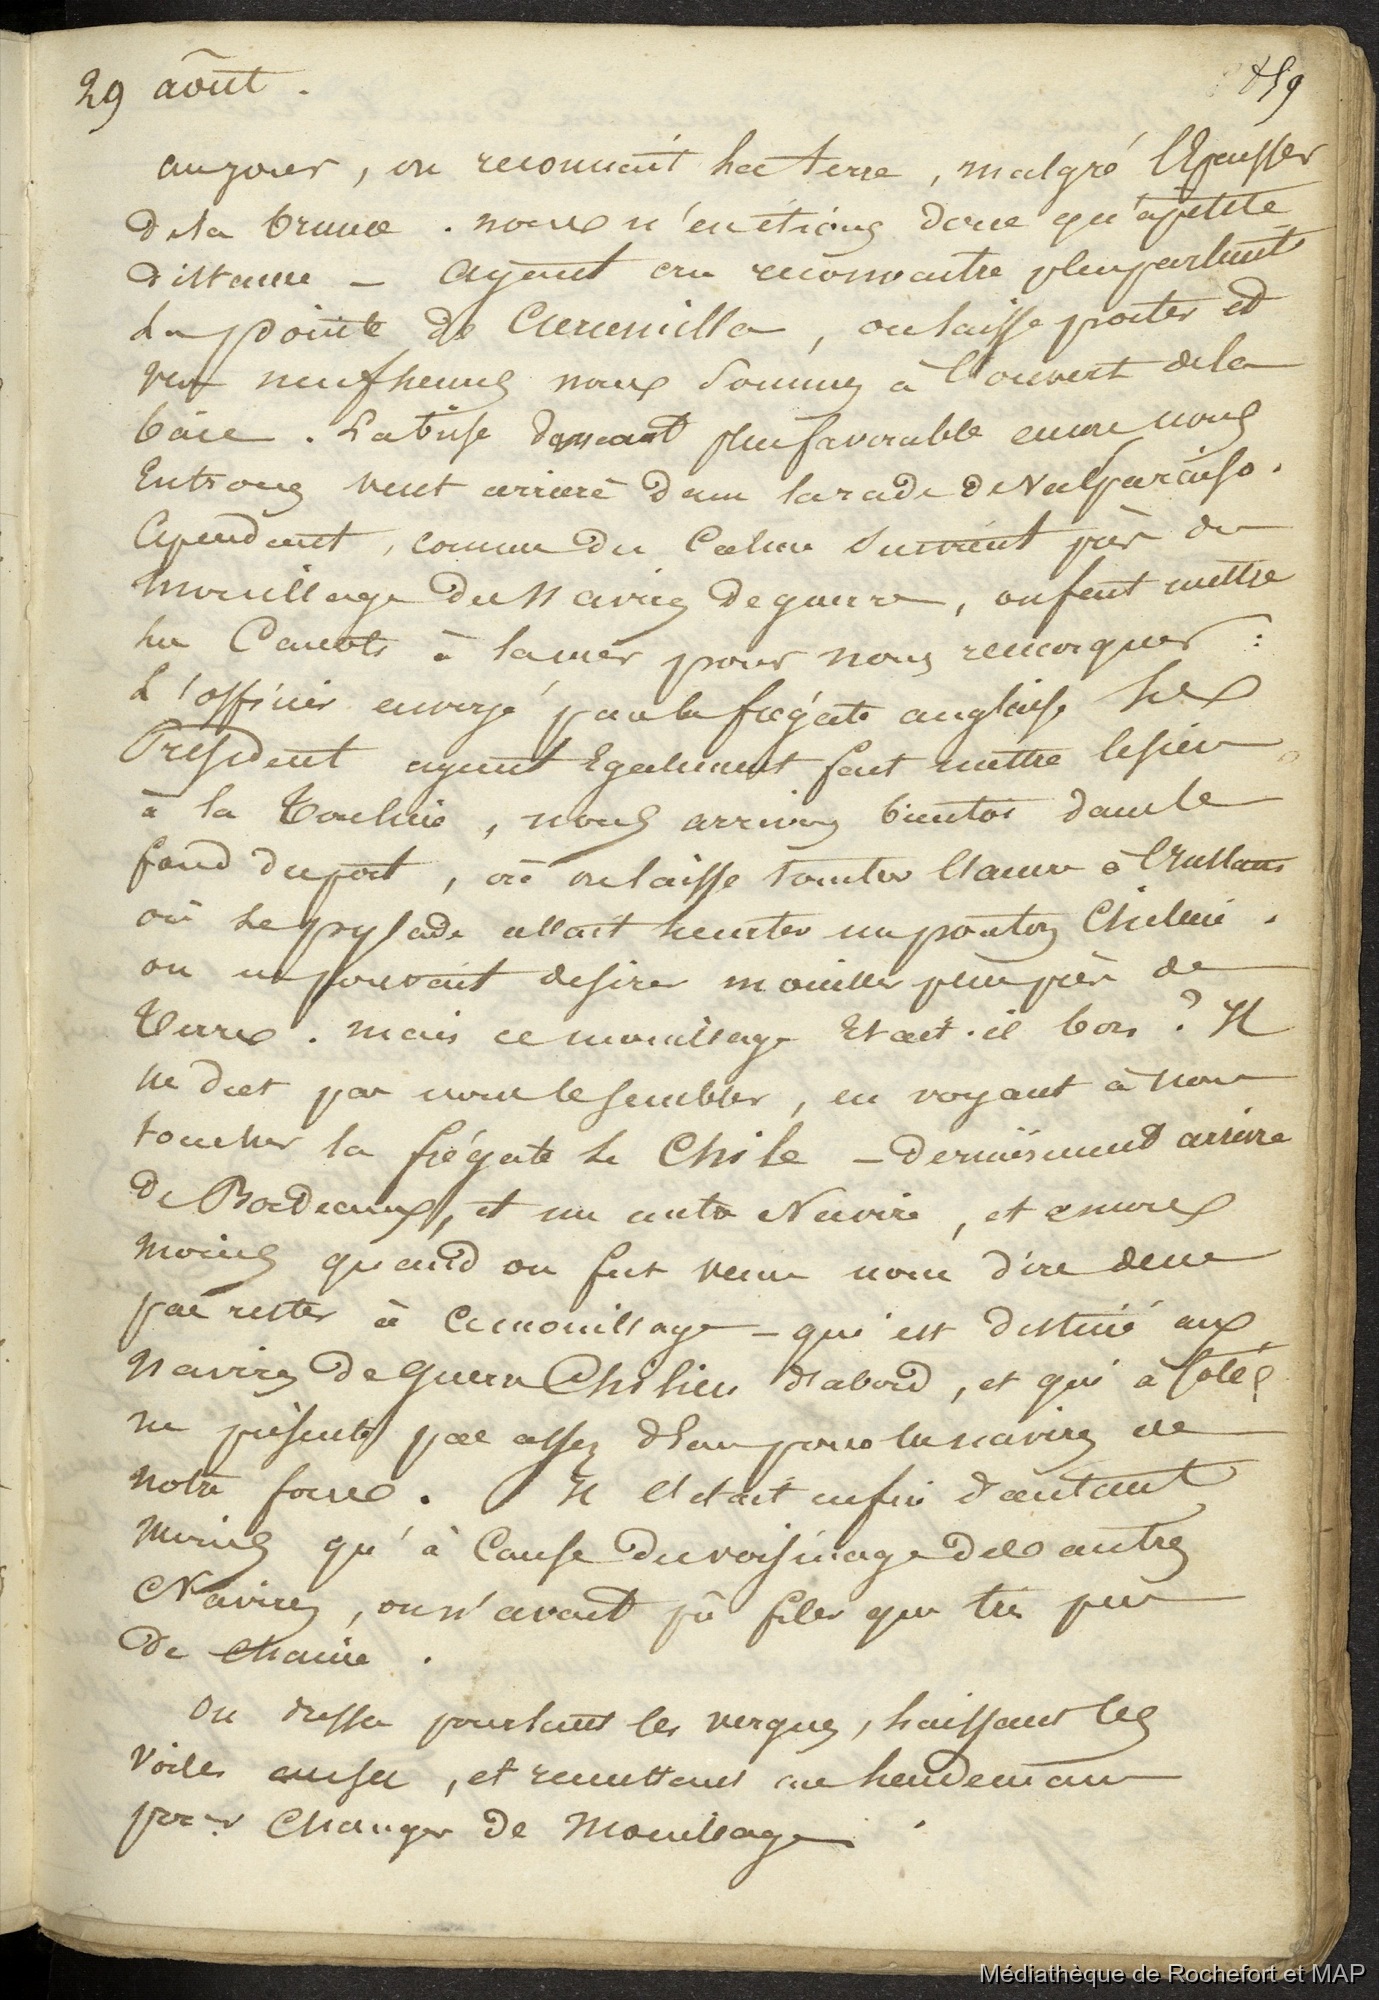 29 août. 859
au jour, on reconnait la terre, malgré l'Epaisseur
de la brume. nous n'en étions donc qu'à petite
distance _ ayant cru reconnaitre plus partant
la pointe de Curaumilla, on laisse porter et
vers neuf heures nous sommes à l'ouvert de la
baie. La brise devenant plus favorable encore nous
Entrons vent arrière dans la rade de Valparaiso.
Cependant, comme du Calme survient près du
mouillage des Navires de guerre, on fait mettre
les Canots à la mer pour nous remorquer :
L'officier envoyé par la frégate anglaise le
Président ayant Egalement fait mettre le sien
à la Touline, nous arrivons bientôt dans le
fond du port, où on laisse tomber l'ancre à l'instant
où le pylade allait heurter un ponton Chilien.
on ne pouvait desirer mouiller plus près de
Terre. mais ce mouillage Etait-il bon ? Il
ne dut pas nous le sembler, en voyant à nous
toucher la frégate le Chile _ dernièrement arrivée
de Bordeaux, et un autre Navire, et encore
moins quand on fut venu nous dire de ne
pas rester à ce mouillage _ qui est destiné aux
Navires de guerre Chiliens d'abord, et qui à côté
ne présente pas assez d'eau pour les navires de
notre force. Il l'était enfin d'autant
moins qu'à Cause du voisinage des autres
Navires, on n'avait pû filer que très peu
de chaine.
On dressa pourtant les vergues, laissant les
voiles , et remettant au lendemain
pour Changer de Mouillage.
Médiathèque de Rochefort et MAP